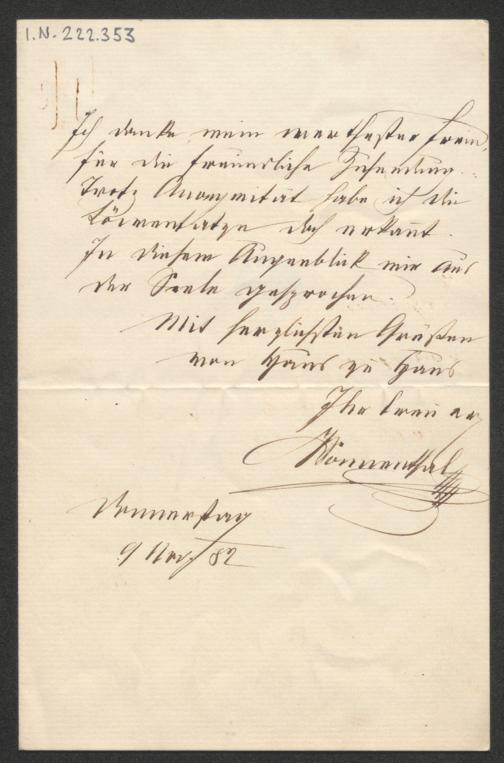 I.N. 222.353
Ich danke, mein werthester Freund,
für die freundliche Zusendung.
Trotz Anonymität habe ich die
Löwentatze doch erkannt.
In diesem Augenblick mir aus
der Seele gesprochen.
Mit herzlichsten Grüßen
von Haus zu Haus
Ihr treu erg
Sonnenthal
Donnerstag
9 Nov. 82